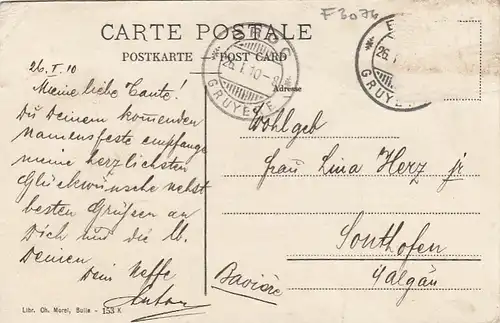 F3076
CARTE POSTALE
POSTKARTE POST CARD
Adresse
BROC
26.I.10-8
GRUYÈRE
26.I
GRUYÈ
26. I. 10
Meine liebe Tante!
Du Deinem komenden
Namensfeste empfange
meine herzlichsten
Glückwünsche nebst
besten Grüßen an
Dich und die lb.
Deinen
Dein Neffe
Anton
Wohlgeb
Frau Lina Herz jr
Sonthofen
Bavière
i/algäu
Libr. Ch. Morel, Bulle - 153 K